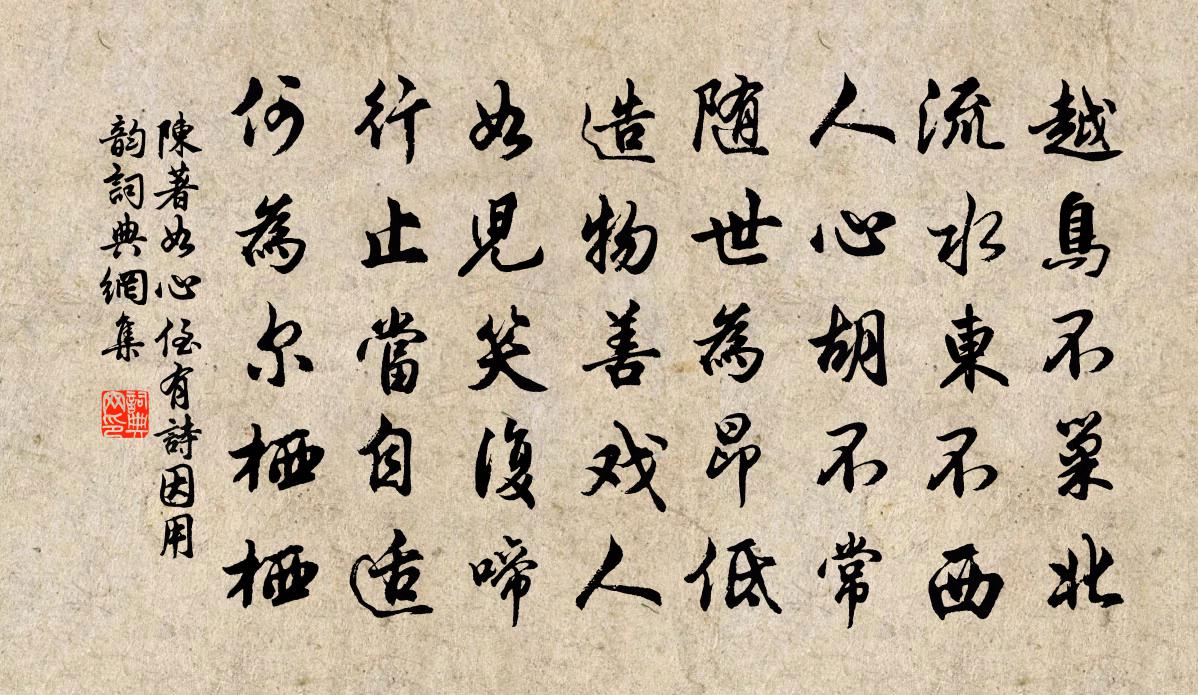 越鳥不巢北
流水東不西
人心胡不常
随世為昂低
造物善戏人
如児笑復啼
行止當自适
何為尔栖栖
陳著如心侄有詩因用
韵詞典網集
詞典
网印